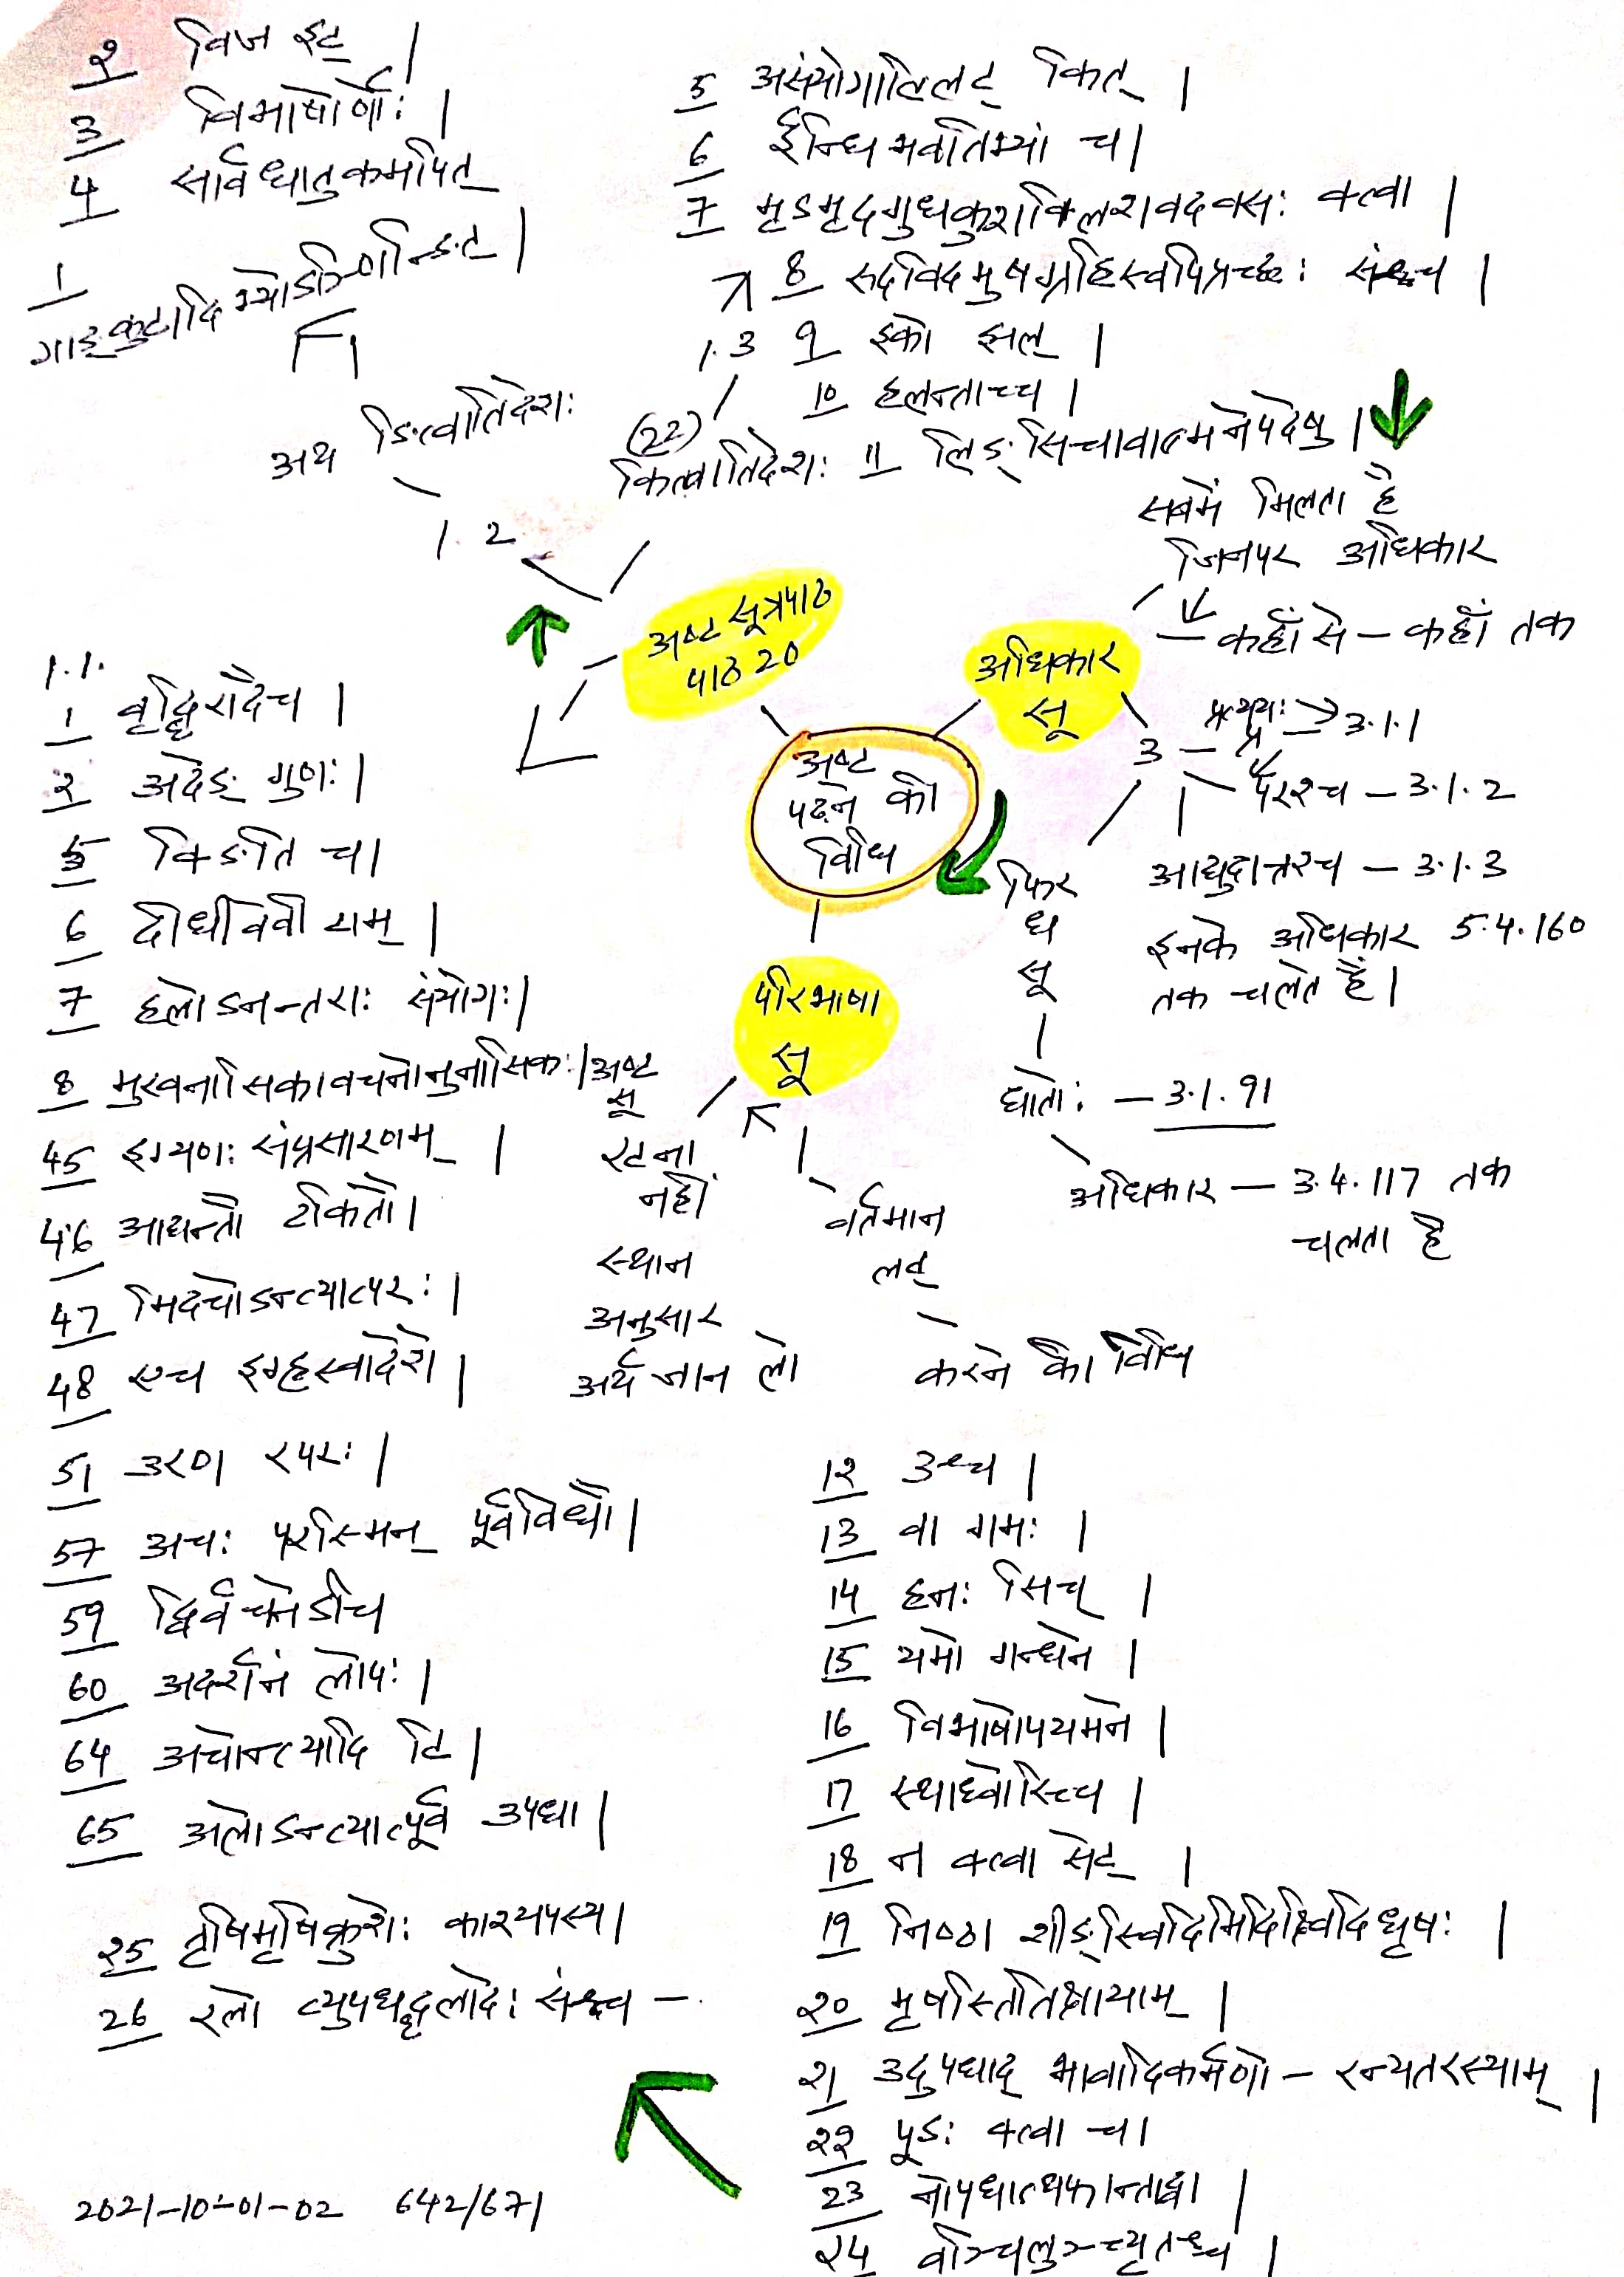 २ विज इट् |
3 विभाषोर्णोः |
4 सार्वधातुकमपित्
1 गाङ्कुटादिभ्योऽञ्णिन्ङित् |
अथ ङित्वातिदेशः
1.2
5 असंयोगाल्लिट् कित् |
6 ईन्धिभवतिभ्यां च |
7 मृडमृदगुधकुशक्लिशवदवसः क्त्वा |
8 रुदविदमुषग्रहिस्वपिप्रच्छः संश्च |
1.3 9 इको झल् |
10 हलन्ताच्च |
(22)
कित्वातिदेशः 11 लिङ्सिचावात्मनेपदेषु |
सबमें मिलता है
जिनपर अधिकार
कहाँ से – कहाँ तक
अष्ट सूत्रपाठ
पाठ 20
अधिकार
सू
अष्ट
पढ़ने की
विधि
3 – प्रत्ययः → 3.1.1
परश्च – 3.1.2
आद्युदात्तश्च – 3.1.3
इनके अधिकार 5.4.160
तक चलते हैं |
फिर
ध
सू
धातोः – 3.1.91
अधिकार – 3.4.117 तक
चलता है
परिभाषा
सू
अष्ट
सू
रटना
नहीं
स्थान
अनुसार
अर्थ जान लो
वर्तमान
लट्
करने की विधि
1.1.
1 वृद्धिरादैच |
२ अदेङ् गुणः |
5 क्ङिति च |
6 दीधीवेवीटाम् |
7 हलोऽनन्तराः संयोगः |
8 मुखनासिकावचनोनुनासिकः |
45 इग्यणः संप्रसारणम् |
46 आद्यन्तौ टकितौ |
47 मिदचोऽन्त्यात्परः |
48 एच इग्ह्रस्वादेशे |
51 उरण रपरः |
57 अचः परस्मिन् पूर्वविधौ |
59 द्विर्वचनेऽचि
60 अदर्शनं लोपः |
64 अचोन्त्यादि टि |
65 अलोऽन्त्यात्पूर्व उपधा |
२5 तृषिमृषिकृशेः काश्यपस्य |
26 रलो व्युपधाद्धलादेः संश्च –
12 उश्च |
13 वा गमः |
14 हनः सिच् |
15 यमो गन्धने |
16 विभाषोपयमने |
17 स्थाघ्वोरिच्च |
18 न क्त्वा सेट् |
19 निष्ठा शीङ्स्विदिमिदिक्ष्विदिधृषः |
२0 मृषस्तितिक्षायाम् |
२1 उदुपधाद् भावादिकर्मणो – रन्यतरस्याम् |
२२ पूङः क्त्वा च |
23 नोपधात्थफान्ताद्वा |
२4 वञ्चिलुञ्च्यृतश्च |
2021-10-01-02 642/671